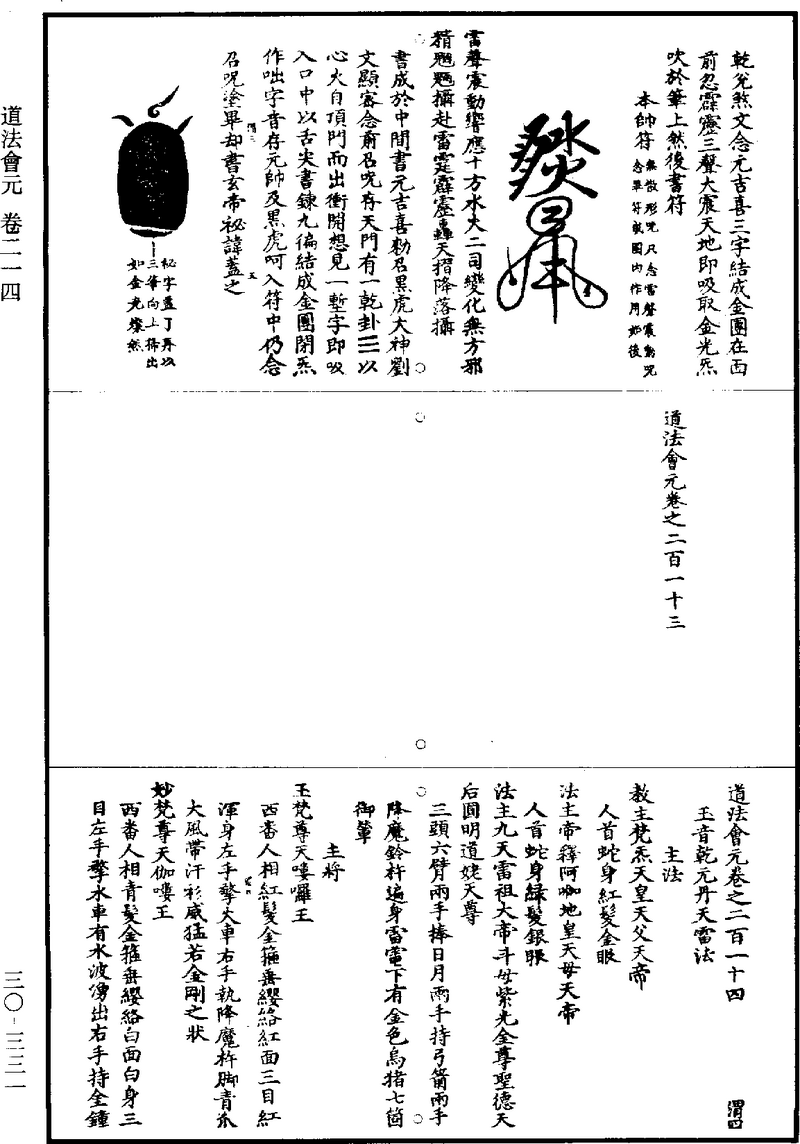 道法會元 卷二一四
三〇-三三一
乾兊煞文念元吉喜三字結成金團在面
前忽霹靂三聲大震天地即吸取金光炁
吹於筆上然後書符
本帥符
無散形咒只念雷聲震動咒
念畢符就圈內作用如後
雷聲震動響應十方水火二司變化無方邪
精魍魎攝赴雷霆霹靂轟天摺降落攝
書成於中間書元吉喜勑召黑虎大神劉
文顯審念前召咒存天門有一乾卦☰以
心火自頂門而出衝開想見一塹字即吸
入口中以舌尖書鍊九徧結成金團閉炁
作咄字音存元帥及黑虎呵入符中仍念
召咒塗畢却書玄帝祕諱蓋之
祕字蓋了再以
三筆向上拂出
如金光燦然
道法會元卷之二百一十三
道法會元卷之二百一十四
渭四
玉音乾元丹天雷法
主法
教主梵炁天皇天父天帝
人首蛇身紅髮金眼
法主帝釋阿咖地皇天母天帝
人首蛇身緑髮銀眼
法主九天雷祖大帝斗母紫光金尊聖德天
后圓明道姥天尊
三頭六臂兩手捧日月兩手持弓箭兩手
降魔鈴杵遍身雷電下有金色烏猪七箇
御輦
主將
玉梵尊天嘍囉王
西番人相紅髮金箍垂纓絡紅面三目紅
渾身左手擎火車右手執降魔杵脚青爪
大風帶汗衫威猛若金剛之狀
妙梵尊天伽嘍王
西番人相青髮金箍垂纓絡白面白身三
目左手擎水車有水波湧出右手持金鐘